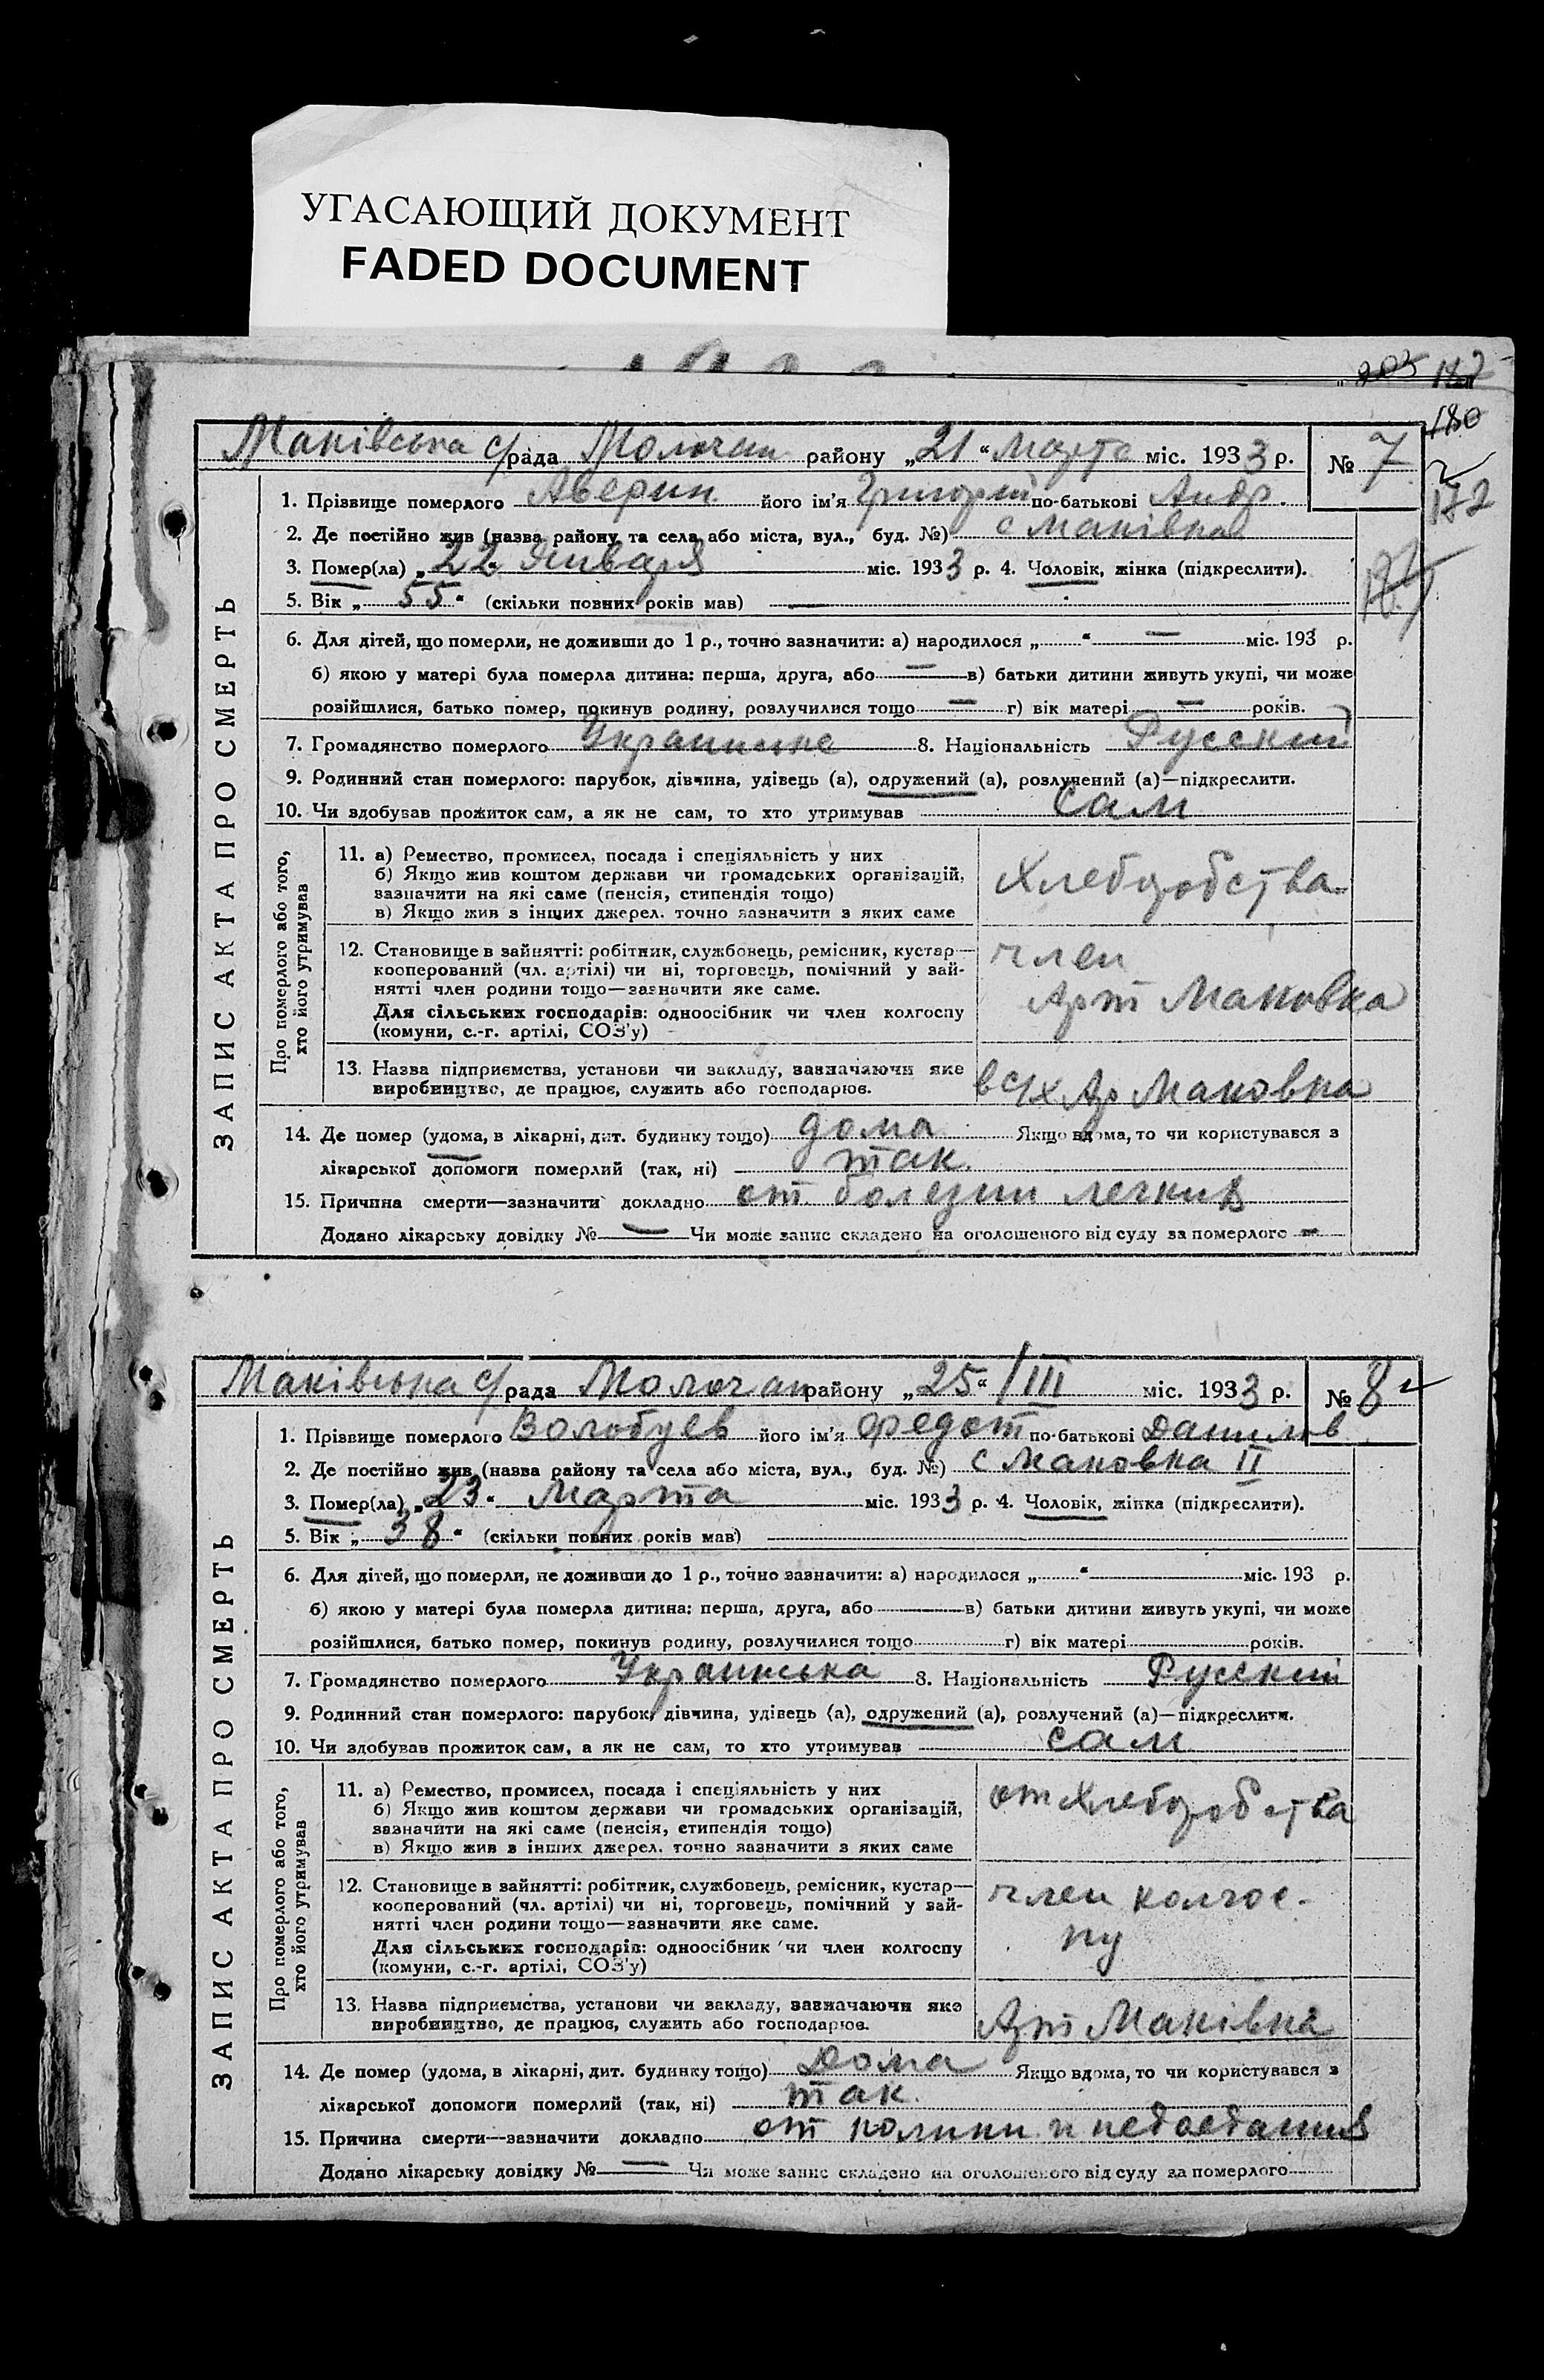 УГАСАЮЩИЙ ДОКУМЕНТ
FADED DOCUMENT
203 182
180
182
Маківська с/рада Молочан району „21“ Марта міс. 1933 р. № 7
ЗАПИС АКТА ПРО СМЕРТЬ
1. Прізвище померлого Аверин його ім'я Григорий по-батькові Андр.
2. Де постійно жив (назва району та села або міста, вул., буд. №) с Маківка
3. Помер(ла) „22 Января міс. 1933 р. 4. Чоловік, жінка (підкреслити).
5. Вік „55“ (скільки повних років мав) —
6. Для дітей, що померли, не доживши до 1 р., точно зазначити: а) народилося „ “ — міс. 193 р.
б) якою у матері була померла дитина: перша, друга, або — в) батьки дитини живуть укупі, чи може
розійшлися, батько помер, покинув родину, розлучилися тощо — г) вік матері — років.
7. Громадянство померлого 8. Національність Русский
9. Родинний стан померлого: парубок, дівчина, удівець (а), одружений (а), розлучений (а)—підкреслити.
10. Чи здобував прожиток сам, а як не сам, то хто утримував сам
Про померлого або того,
хто його утримував
11. а) Ремество, промисел, посада і спеціяльність у них
б) Якщо жив коштом держави чи громадських організацій,
зазначити на які саме (пенсія, стипендія тощо)
в) Якщо жив з інших джерел. точно зазначити з яких саме
Хлеборобства
12. Становище в зайнятті: робітник, службовець, ремісник, кустар—
кооперований (чл. артілі) чи ні, торговець, помічний у зай-
нятті член родини тощо—зазначити яке саме.
Для сільських господарів: одноосібник чи член колгоспу
(комуни, с.-г. артілі, СОЗ'у)
член
Арт Маковка
13. Назва підприємства, установи чи закладу, зазначаючи яке
виробництво, де працює, служить або господарює.
в с/х Ар Маковка
14. Де помер (удома, в лікарні, дит. будинку тощо) дома Якщо вдома, то чи користувався з
лікарської допомоги померлий (так, ні) так
15. Причина смерти—зазначити докладно от болезни легких
Додано лікарську довідку № — Чи може запис складено на оголошеного від суду за померлого —
Маківська с/рада Молочан району „25“/III міс. 1933 р. № 8
ЗАПИС АКТА ПРО СМЕРТЬ
1. Прізвище померлого Волобуев його ім'я Федот по-батькові Данилов
2. Де постійно жив (назва району та села або міста, вул., буд. №) с Маковка II
3. Помер(ла) „23“ Марта міс. 1933 р. 4. Чоловік, жінка (підкреслити).
5. Вік „38“ (скільки повних років мав)
6. Для дітей, що померли, не доживши до 1 р., точно зазначити: а) народилося „ “ міс. 193 р.
б) якою у матері була померла дитина: перша, друга, або в) батьки дитини живуть укупі, чи може
розійшлися, батько помер, покинув родину, розлучилися тощо г) вік матері років.
7. Громадянство померлого Украинська 8. Національність Русский
9. Родинний стан померлого: парубок, дівчина, удівець (а), одружений (а), розлучений (а)—підкреслити.
10. Чи здобував прожиток сам, а як не сам, то хто утримував сам
Про померлого або того,
хто його утримував
11. а) Ремество, промисел, посада і спеціяльність у них
б) Якщо жив коштом держави чи громадських організацій,
зазначити на які саме (пенсія, стипендія тощо)
в) Якщо жив з інших джерел. точно зазначити з яких саме
от Хлеборобства
12. Становище в зайнятті: робітник, службовець, ремісник, кустар—
кооперований (чл. артілі) чи ні, торговець, помічний у зай-
нятті член родини тощо—зазначити яке саме.
Для сільських господарів: одноосібник чи член колгоспу
(комуни, с.-г. артілі, СОЗ'у)
член колгос-
пу
13. Назва підприємства, установи чи закладу, зазначаючи яке
виробництво, де працює, служить або господарює.
Арт Маківка
14. Де помер (удома, в лікарні, дит. будинку тощо) Дома Якщо вдома, то чи користувався з
лікарської допомоги померлий (так, ні) так
15. Причина смерти—зазначити докладно от и недоедания
Додано лікарську довідку № — Чи може запис складено на оголошеного від суду за померлого